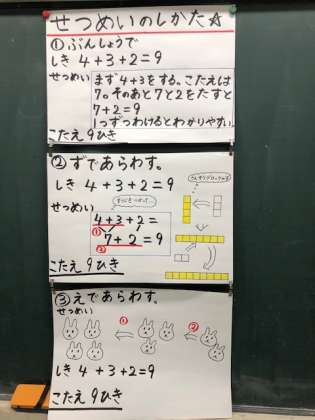 せつめいのしかた☆
①ぶんしょうで
しき 4+3+2=9
せつめい
まず4+3をする。こたえは
7。そのあと7と2をたすと
7+2=9
1つずつわけるとわかりやすい。
こたえ 9ひき
②ずであらわす。
しき 4+3+2=9
さんすうブロックのず
せつめい
4+3+2=
① 7+2=9
②
こたえ 9ひき
③えであらわす。
せつめい
① ②
しき 4+3+2=9
こたえ 9ひき